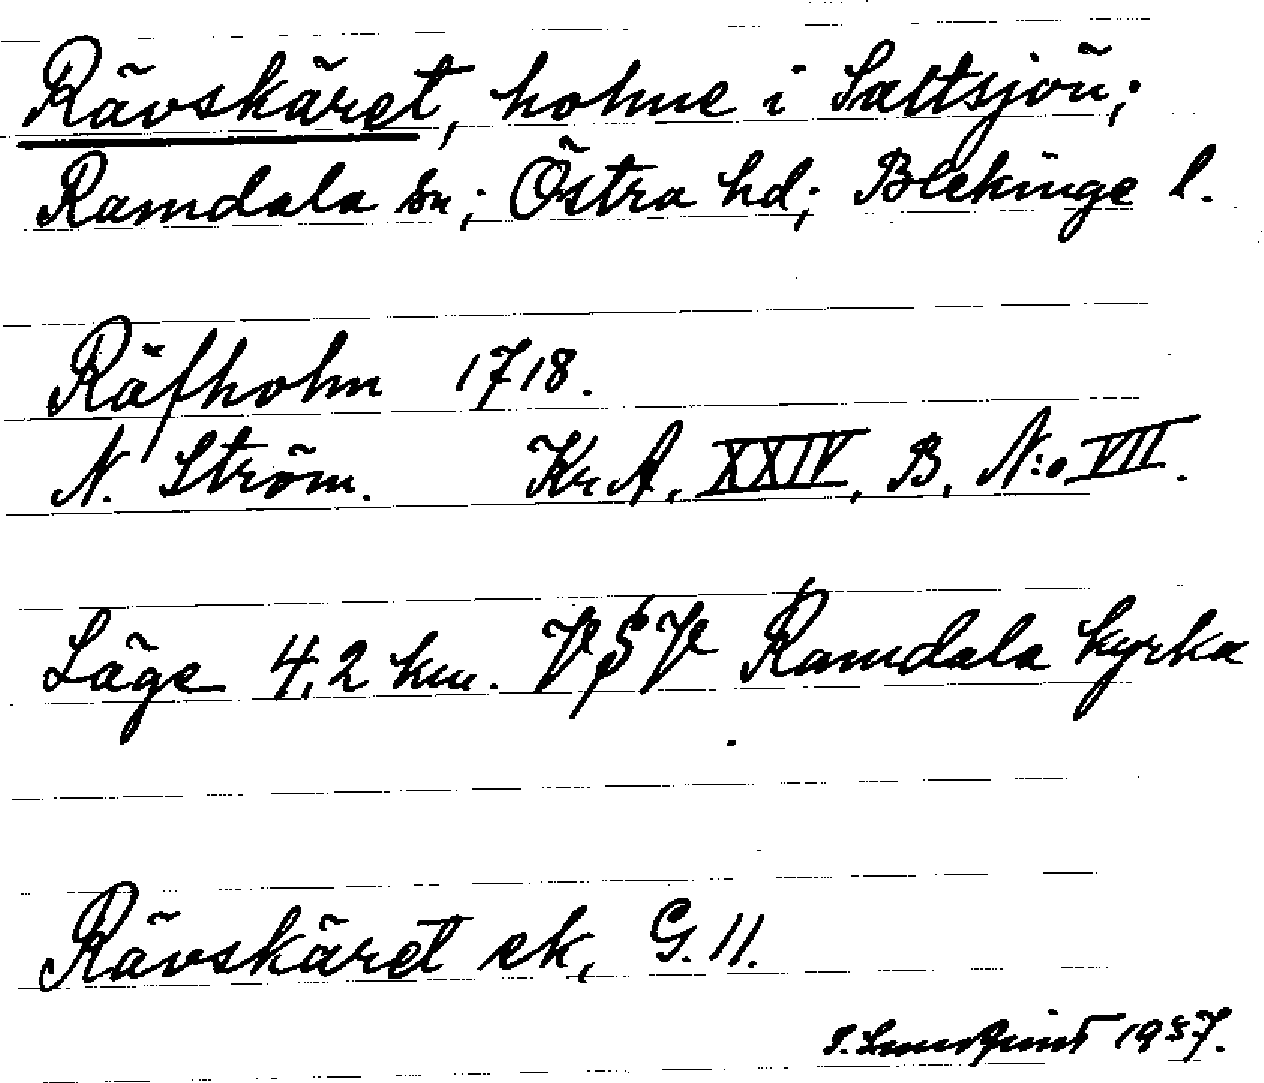 Rävskäret, holme i Saltsjön;
Ramdala sn; Östra hd; Blekinge l.
Räfholm 1718.
N. Ström. Kr.A, XXIV, B, N:o VII.
Läge 4,2 km. VSV Ramdala kyrka
Rävskäret ek, G. 11.
1937.